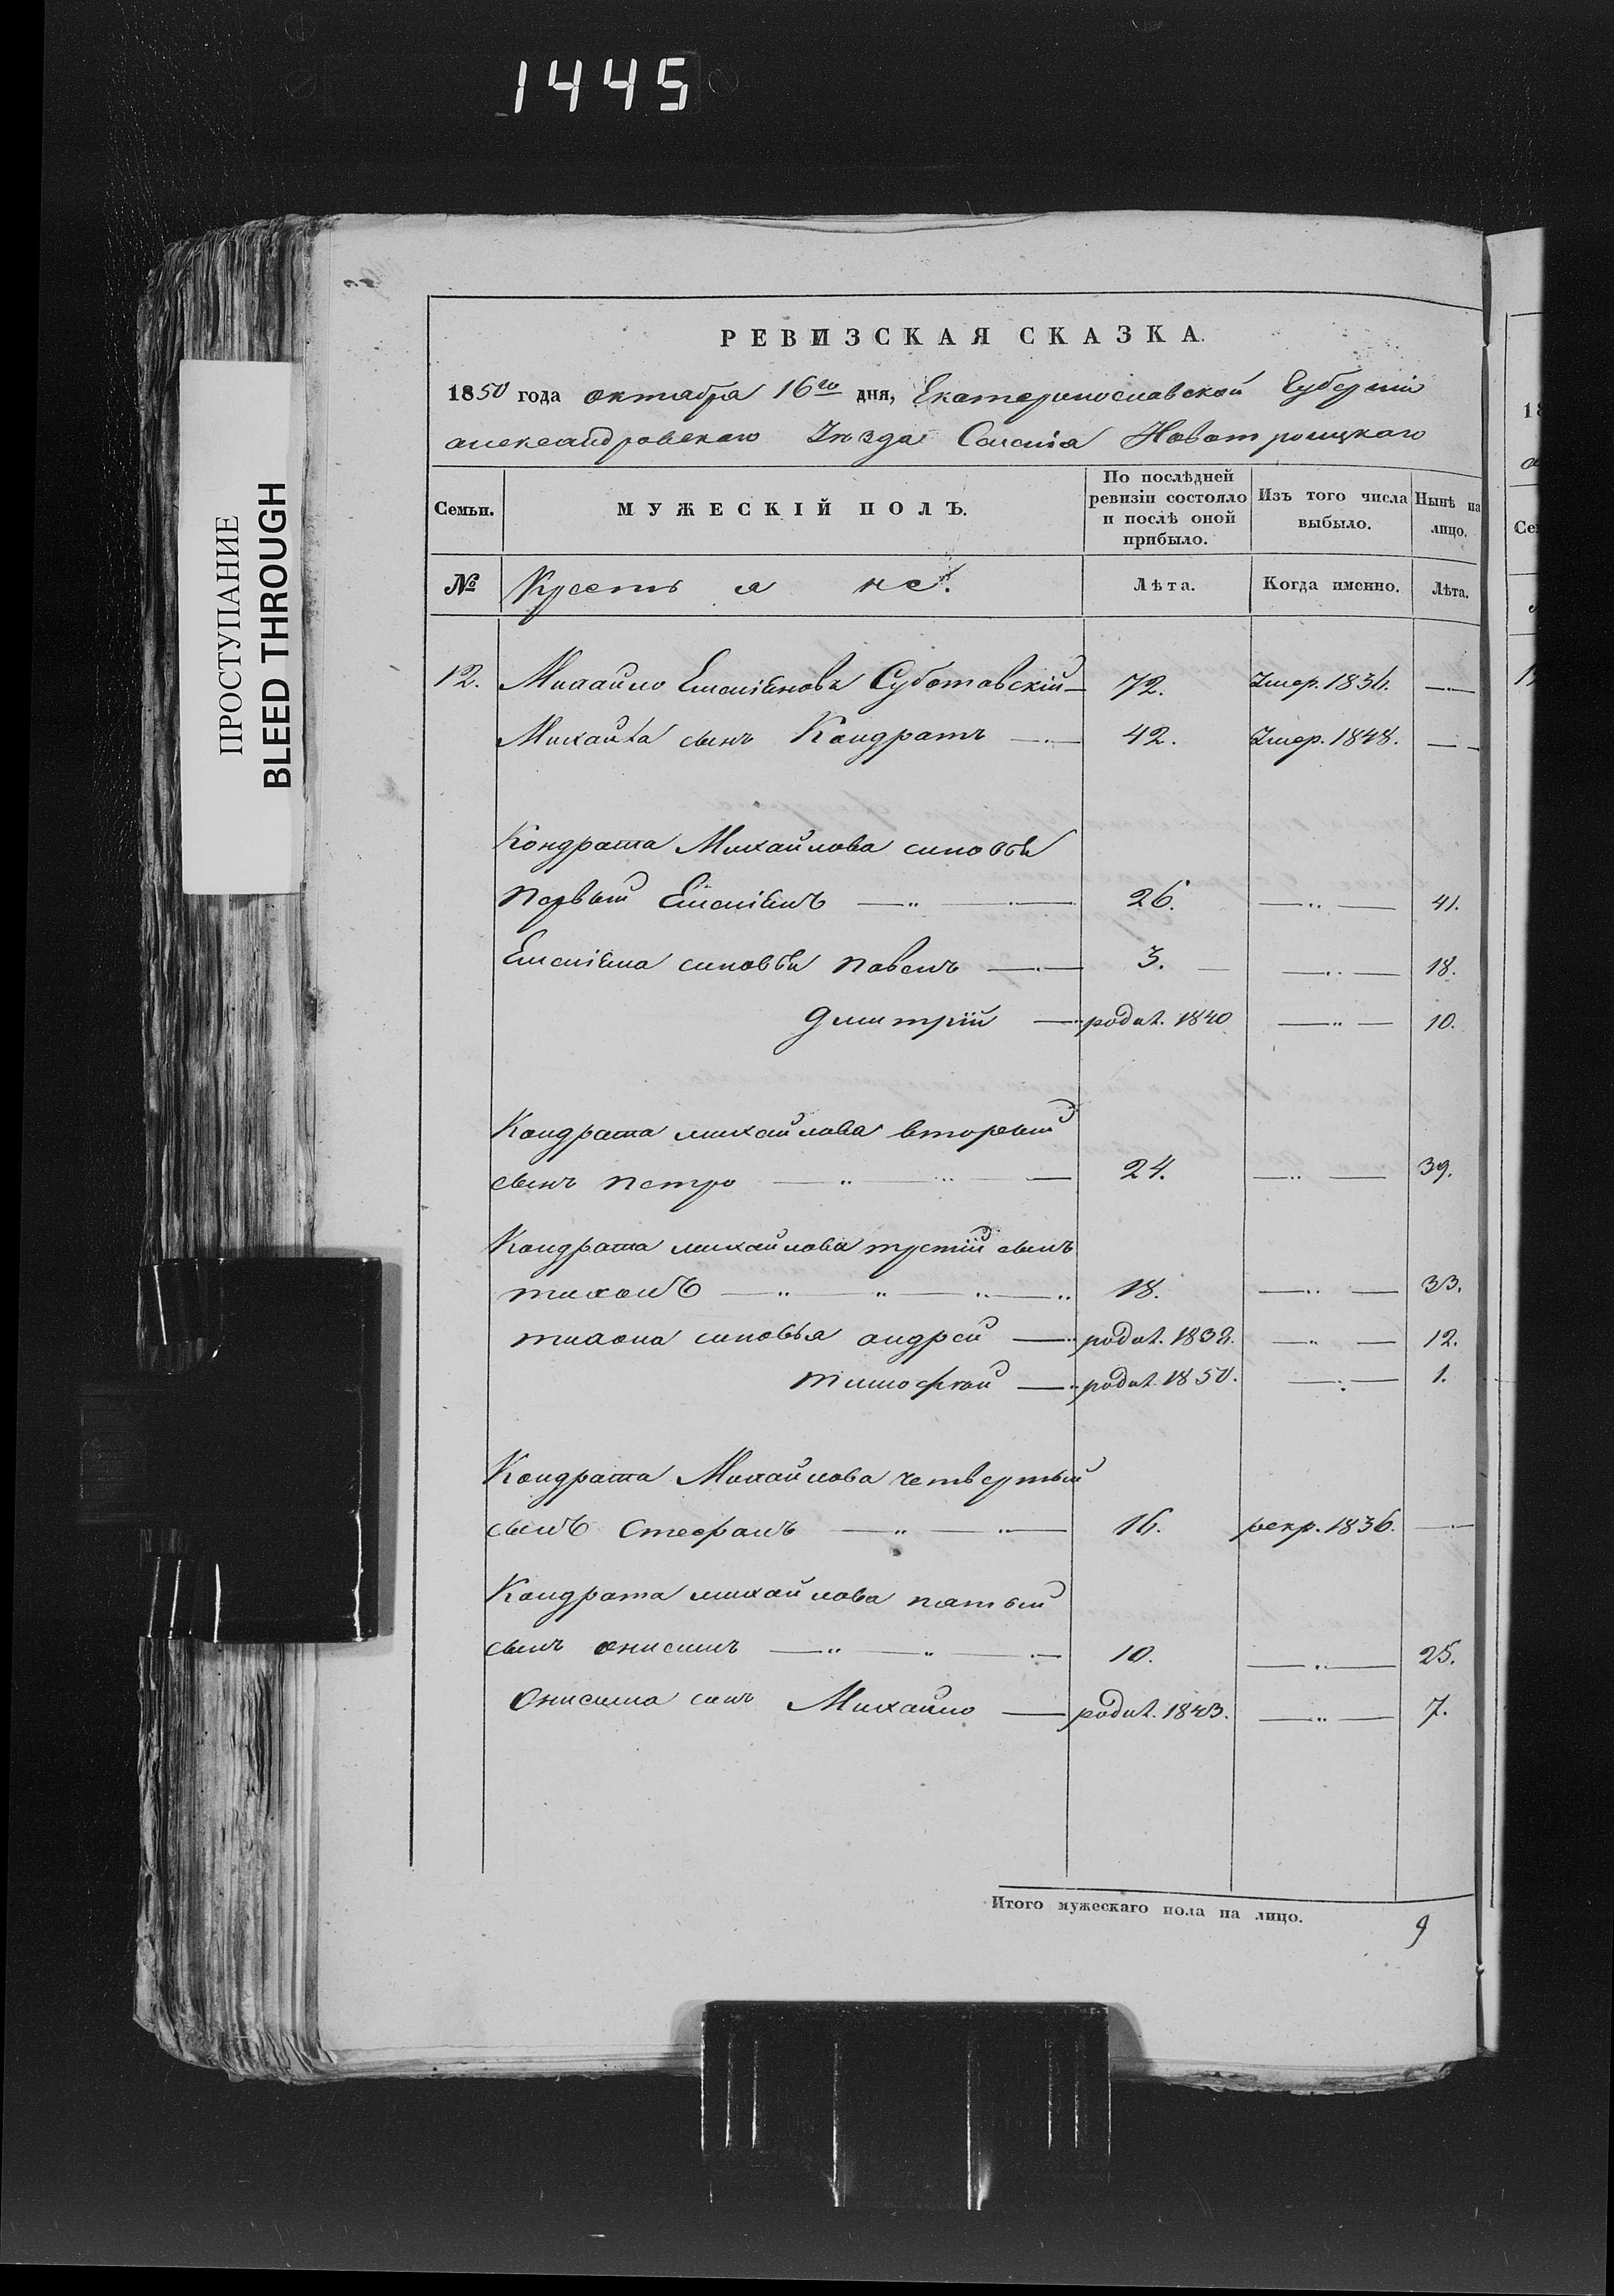 1445
ПРОСТУПАНИЕ
BLEED THROUGH
РЕВИЗСКАЯ СКАЗКА.
1850 года октября 16го дня, Екатеринославской Губерніи
александровскаго Уѣзда Селенія Новотроицкаго
Семьи. МУЖЕСКІЙ ПОЛЪ. По послѣдней ревизіи состояло и послѣ оной прибыло. Изъ того числа выбыло. Нынѣ на лицо.
№ Крестьяне. Лѣта. Когда именно. Лѣта.
12. Михайло Емеліяновъ Суботовскій 72. Умер. 1836. —
Михайла сынъ Кондратъ — 42. Умер. 1848. —
Кондрата Михайлова синовья
первый Емеліянъ — „ — 26. — „ — 41.
Емеліяна синовья павелъ — 3. — „ — 18.
дмитрій — родил. 1840 — „ — 10.
Кондрата михайлова вторый
сынъ петро — „ — „ — 24. — „ — 39.
Кондрата михайлова третій сынъ
тихонъ — „ — „ — „ — „ 18. — „ — 33.
тихона синовья андрей — родил. 1838. — „ — 12.
тимофѣй — родил. 1850. — „ — 1.
Кондрата Михайлова четвертый
сынъ Стефанъ — „ — „ — 16. рекр. 1836. —
Кондрата михайлова пятый
сынъ онисимъ — „ — „ — 10. — „ — 25.
Онисима синъ Михайло — родил. 1843. — „ — 7.
Итого мужескаго пола на лицо. 9